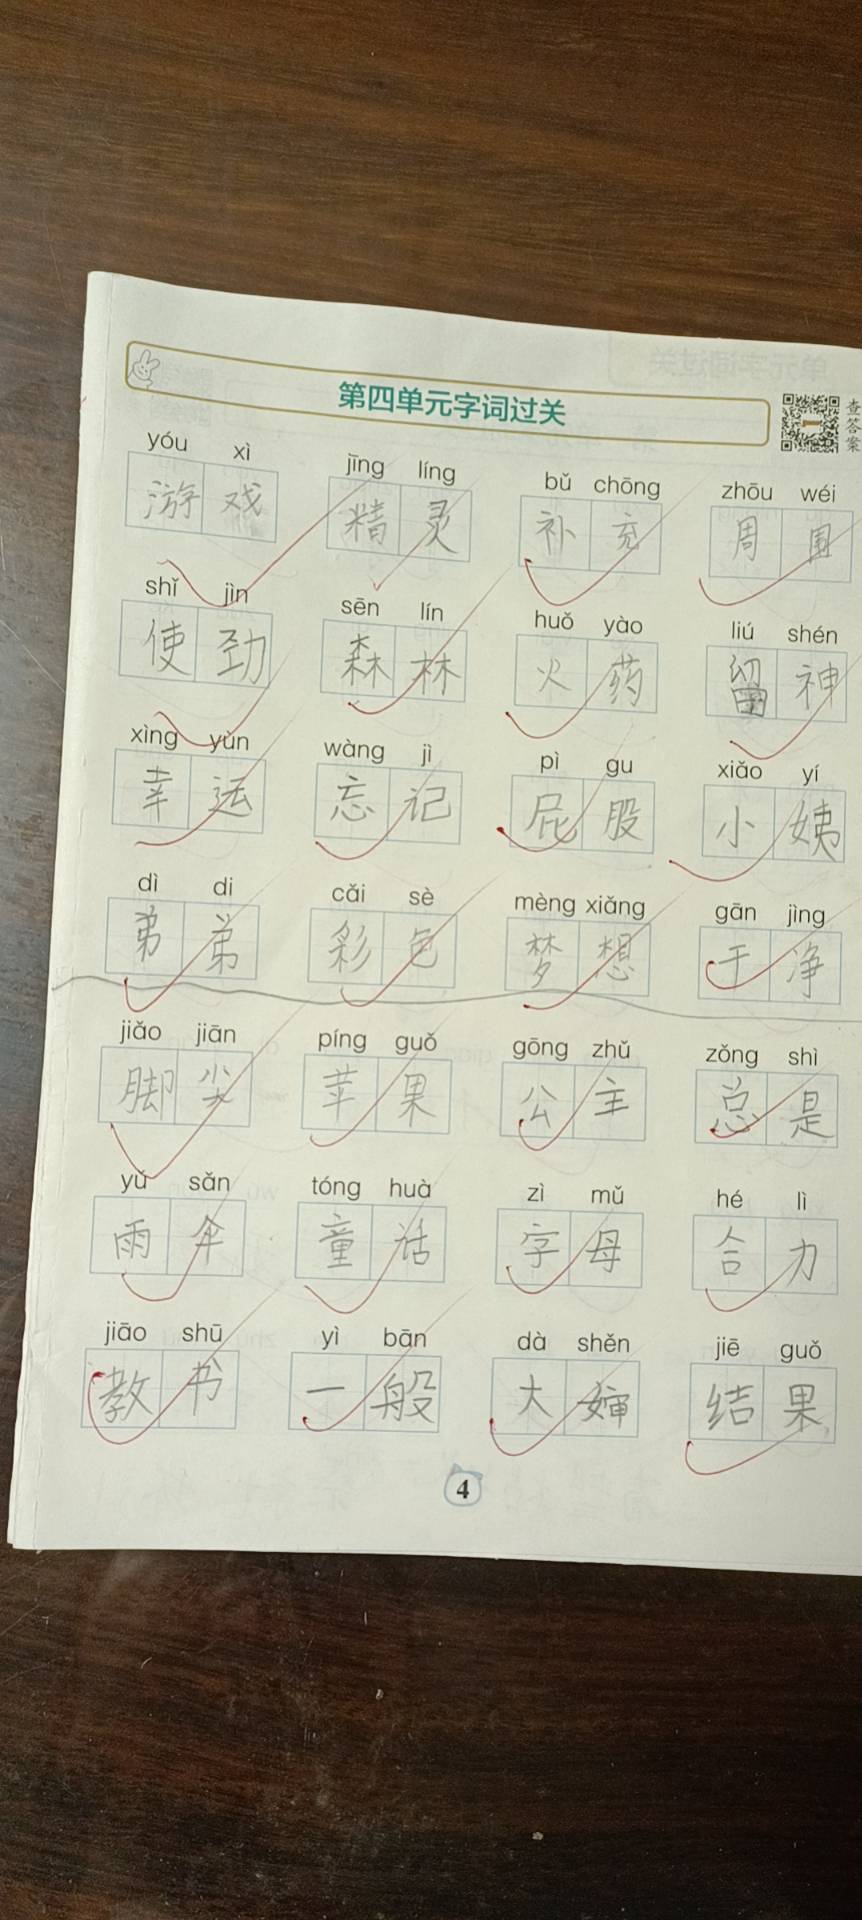 第四单元字词过关
查答案
yóu xì jīng líng bǔ chōng zhōu wéi
游戏 精灵 补充 周围
shǐ jìn sēn lín huǒ yào liú shén
使劲 森林 火药 留神
xìng yùn wàng jì pì gu xiǎo yí
幸运 忘记 屁股 小姨
dì di cǎi sè mèng xiǎng gān jìng
弟弟 彩色 梦想 干净
jiǎo jiān píng guǒ gōng zhǔ zǒng shì
脚尖 苹果 公主 总是
yǔ sǎn tóng huà zì mǔ hé lì
雨伞 童话 字母 合力
jiāo shū yì bān dà shěn jiē guǒ
教书 一般 大婶 结果
4